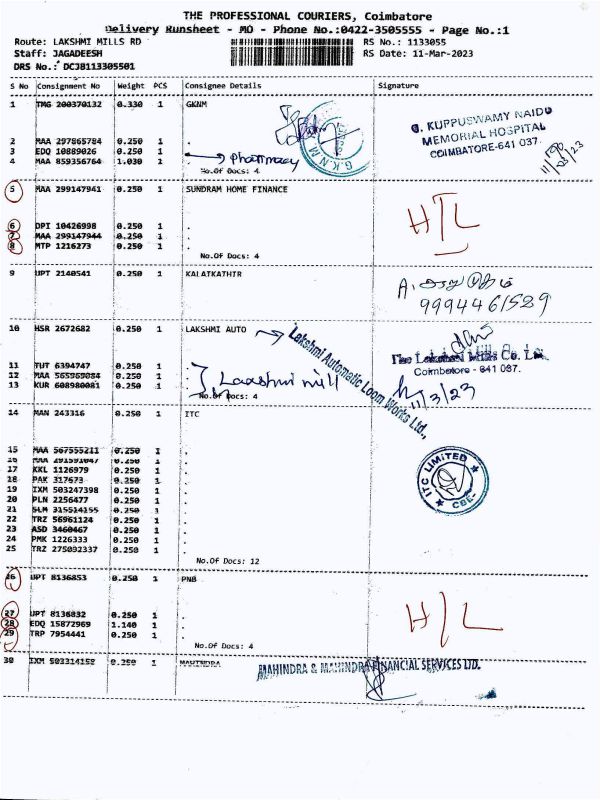 THE PROFESSIONAL COURIERS, Coimbatore
Delivery Runsheet - MO - Phone No.:0422-3505555 - Page No.:1
Route: LAKSHMI MILLS RD
RS No.: 1133055
Staff: JAGADEESH
RS Date: 11-Mar-2023
DRS No.: DCJB113305501
S No Consignment No Weight PCS Consignee Details Signature
1 TMG 200370132 0.330 1 GKNM
G. KUPPUSWAMY NAIDU
MEMORIAL HOSPITAL
COIMBATORE-641 037.
G.K.N.M
2 MAA 297865784 0.250 1 .
3 EDQ 10889026 0.250 1 .
Pharmacy
4 MAA 859356764 1.030 .
No.Of Docs: 4
5 MAA 299147941 0.250 1 SUNDRAM HOME FINANCE
H/L
6 DPI 10426998 0.250 1 .
7 MAA 299147944 0.250 1 .
8 MTP 1216273 0.250 1 .
No.Of Docs: 4
9 UPT 2140541 0.250 1 KALATKATHIR
9994461529
10 HSR 2672682 0.250 1 LAKSHMI AUTO
Lakshmi Automatic Loom Works Ltd.,
The Lakshmi Mills Co. Ltd.
Coimbatore - 641 037.
11/3/23
11 TUT 6394747 0.250 1 .
12 MAA 565969084 0.250 1 .
13 KUR 608980081 0.250 1 .
Laxshmi mill
No.Of Docs: 4
14 MAN 243316 0.250 1 ITC
ITC LIMITED
CBE-
15 MAA 567555211 0.250 1 .
16 MAA 291591047 0.250 1 .
17 KKL 1126979 0.250 1 .
18 PAK 317673 0.250 1 .
19 IXM 503247398 0.250 1 .
20 PLN 2256477 0.250 1 .
21 SLM 315514155 0.250 .
22 TRZ 56961124 0.250 1 .
23 ASD 3460467 0.250 1 .
24 PMK 1226333 0.250 1 .
25 TRZ 275092337 0.250 1 .
No.Of Docs: 12
26 UPT 8136853 0.250 1 PNB
H/L
27 UPT 8136832 0.250 1 .
28 EDQ 15872969 1.140 1 .
29 TRP 7954441 0.250 1 .
No.Of Docs: 4
30 IXM 503314152 0.250 1 MAHINDRA
MAHINDRA & MAHINDRA FINANCIAL SERVICES LTD.